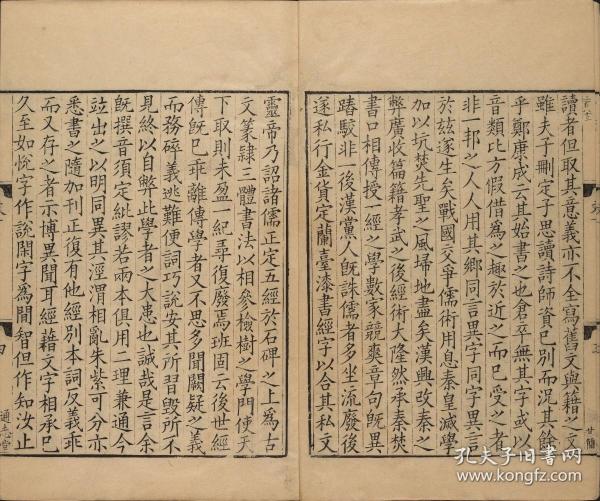 讀者但取其意義亦不全寫舊文與籍之文
雖夫子刪定子思讀詩師資已別而況其餘
乎鄭康成云其始書之也倉卒無其字或以
音類比方假借為之趣於近之而已受之者
非一邦之人人用其鄉同言異字同字異言
於茲遂生矣戰國交爭儒術用息秦皇滅學
加以坑焚先聖之風埽地盡矣漢興改秦之
弊廣收篇籍孝武之後經術大隆然承秦焚
書口相傳授一經之學數家競爽章句既異
踳駮非一後漢黨人既誅儒者多坐流廢後
遂私行金貨定蘭臺漆書經字以合其私文
靈帝乃詔諸儒正定五經於石碑之上為古
文篆隸三體書法以相參檢樹之學門使天
下取則未盈一紀尋復廢焉班固云後世經
傳既已乖離傳學者又不思多聞闕疑之義
而務碎義逃難便詞巧說安其所習毀所不
見終以自弊此學者之大患也誠哉是言余
既撰音須定紕謬若兩本俱用二理兼通今
竝出之以明同異其涇渭相亂朱紫可分亦
悉書之隨加刊正復有他經別本詞反義乖
而又存之者示博異聞耳經籍文字相承已
久至如悅字作說閑字為閒智但作知汝止
四
通志堂
甘簡
孔夫子旧书网
kongfz.com
孔夫子旧书网
www.kongfz.com